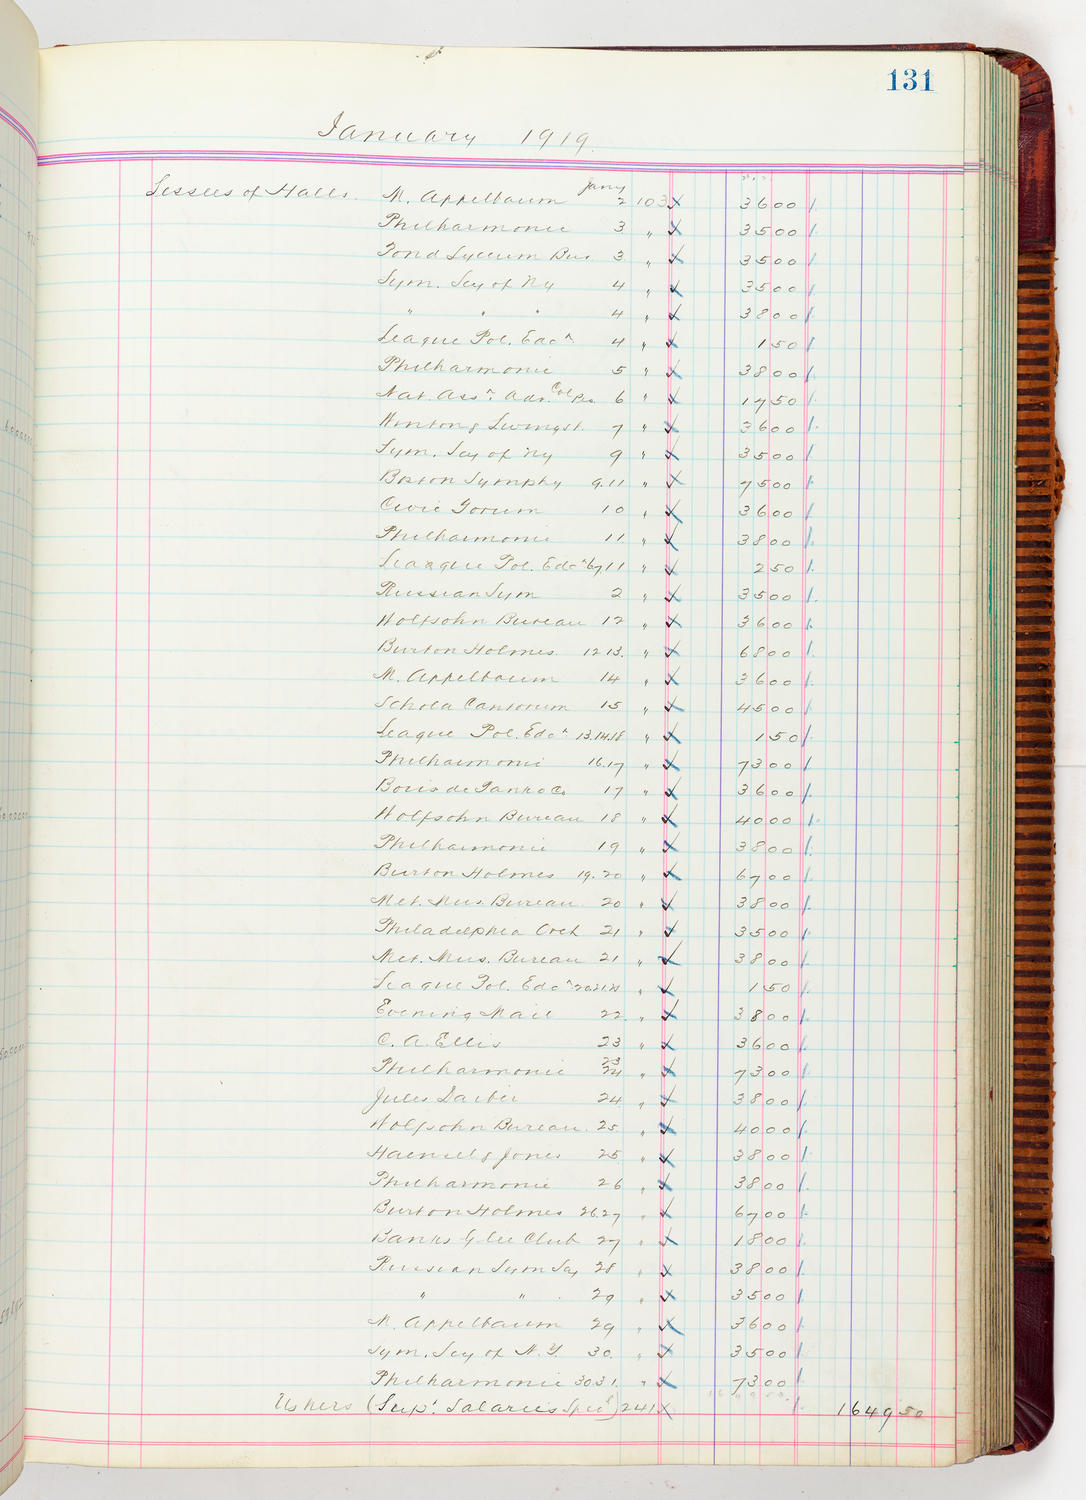 131
January 1919.
Lessees of Halls. M. Appelbaum Jany 2 103 3600
Philharmonic 3 " 3500
Fond Lyceum Bur. 3 " 3500
Sym. Scy of Ny 4 " 3500
" " " 4 " 3800
League Pol. Edcn 4 " 150
Philharmonic 5 " 3800
Nat. Assn. Adv. Col Peo 6 " 1750
Winton & Livingst. 7 " 3600
Sym. Scy of Ny 9 " 3500
Boston Symphy 9.11 " 7500
Civic Forum 10 " 3600
Philharmonic 11 " 3800
League Pol. Edcn 6.7.11 " 250
Russian Sym 2 " 3500
Wolfsohn Bureau 12 " 3600
Burton Holmes. 12 13. " 6800
M. Appelbaum 14 " 3600
Schola Cantorum 15 " 4500
League Pol. Edcn 13.14.18 " 150
Philharmonic 16.17 " 7300
Boris de Tanko Co 17 " 3600
Wolfsohn Bureau 18 " 4000
Philharmonic 19 " 3800
Burton Holmes 19.20 " 6700
Met. Mus. Bureau 20 " 3800
Philadelphia Orch 21 " 3500
Met. Mus. Bureau 21 " 3800
League Pol. Edcn " 150
Evening Mail 22 " 3800
C. A. Ellis 23 " 3600
Philharmonic 23 24 " 7300
Jules Daiber 24 " 3800
Wolfsohn Bureau. 25 " 4000
Haensel & Jones 25 " 3800
Philharmonic 26 " 3800
Burton Holmes 26.27 " 6700
Banks Glee Club 27 " 1800
Russian Sym Scy 28 " 3800
" " 29 " 3500
M. Appelbaum 29 " 3600
Sym. Scy of N.Y. 30. " 3500
Philharmonic 30 31. " 7300
Ushers (Supt. Salaries Specl) 241 164950